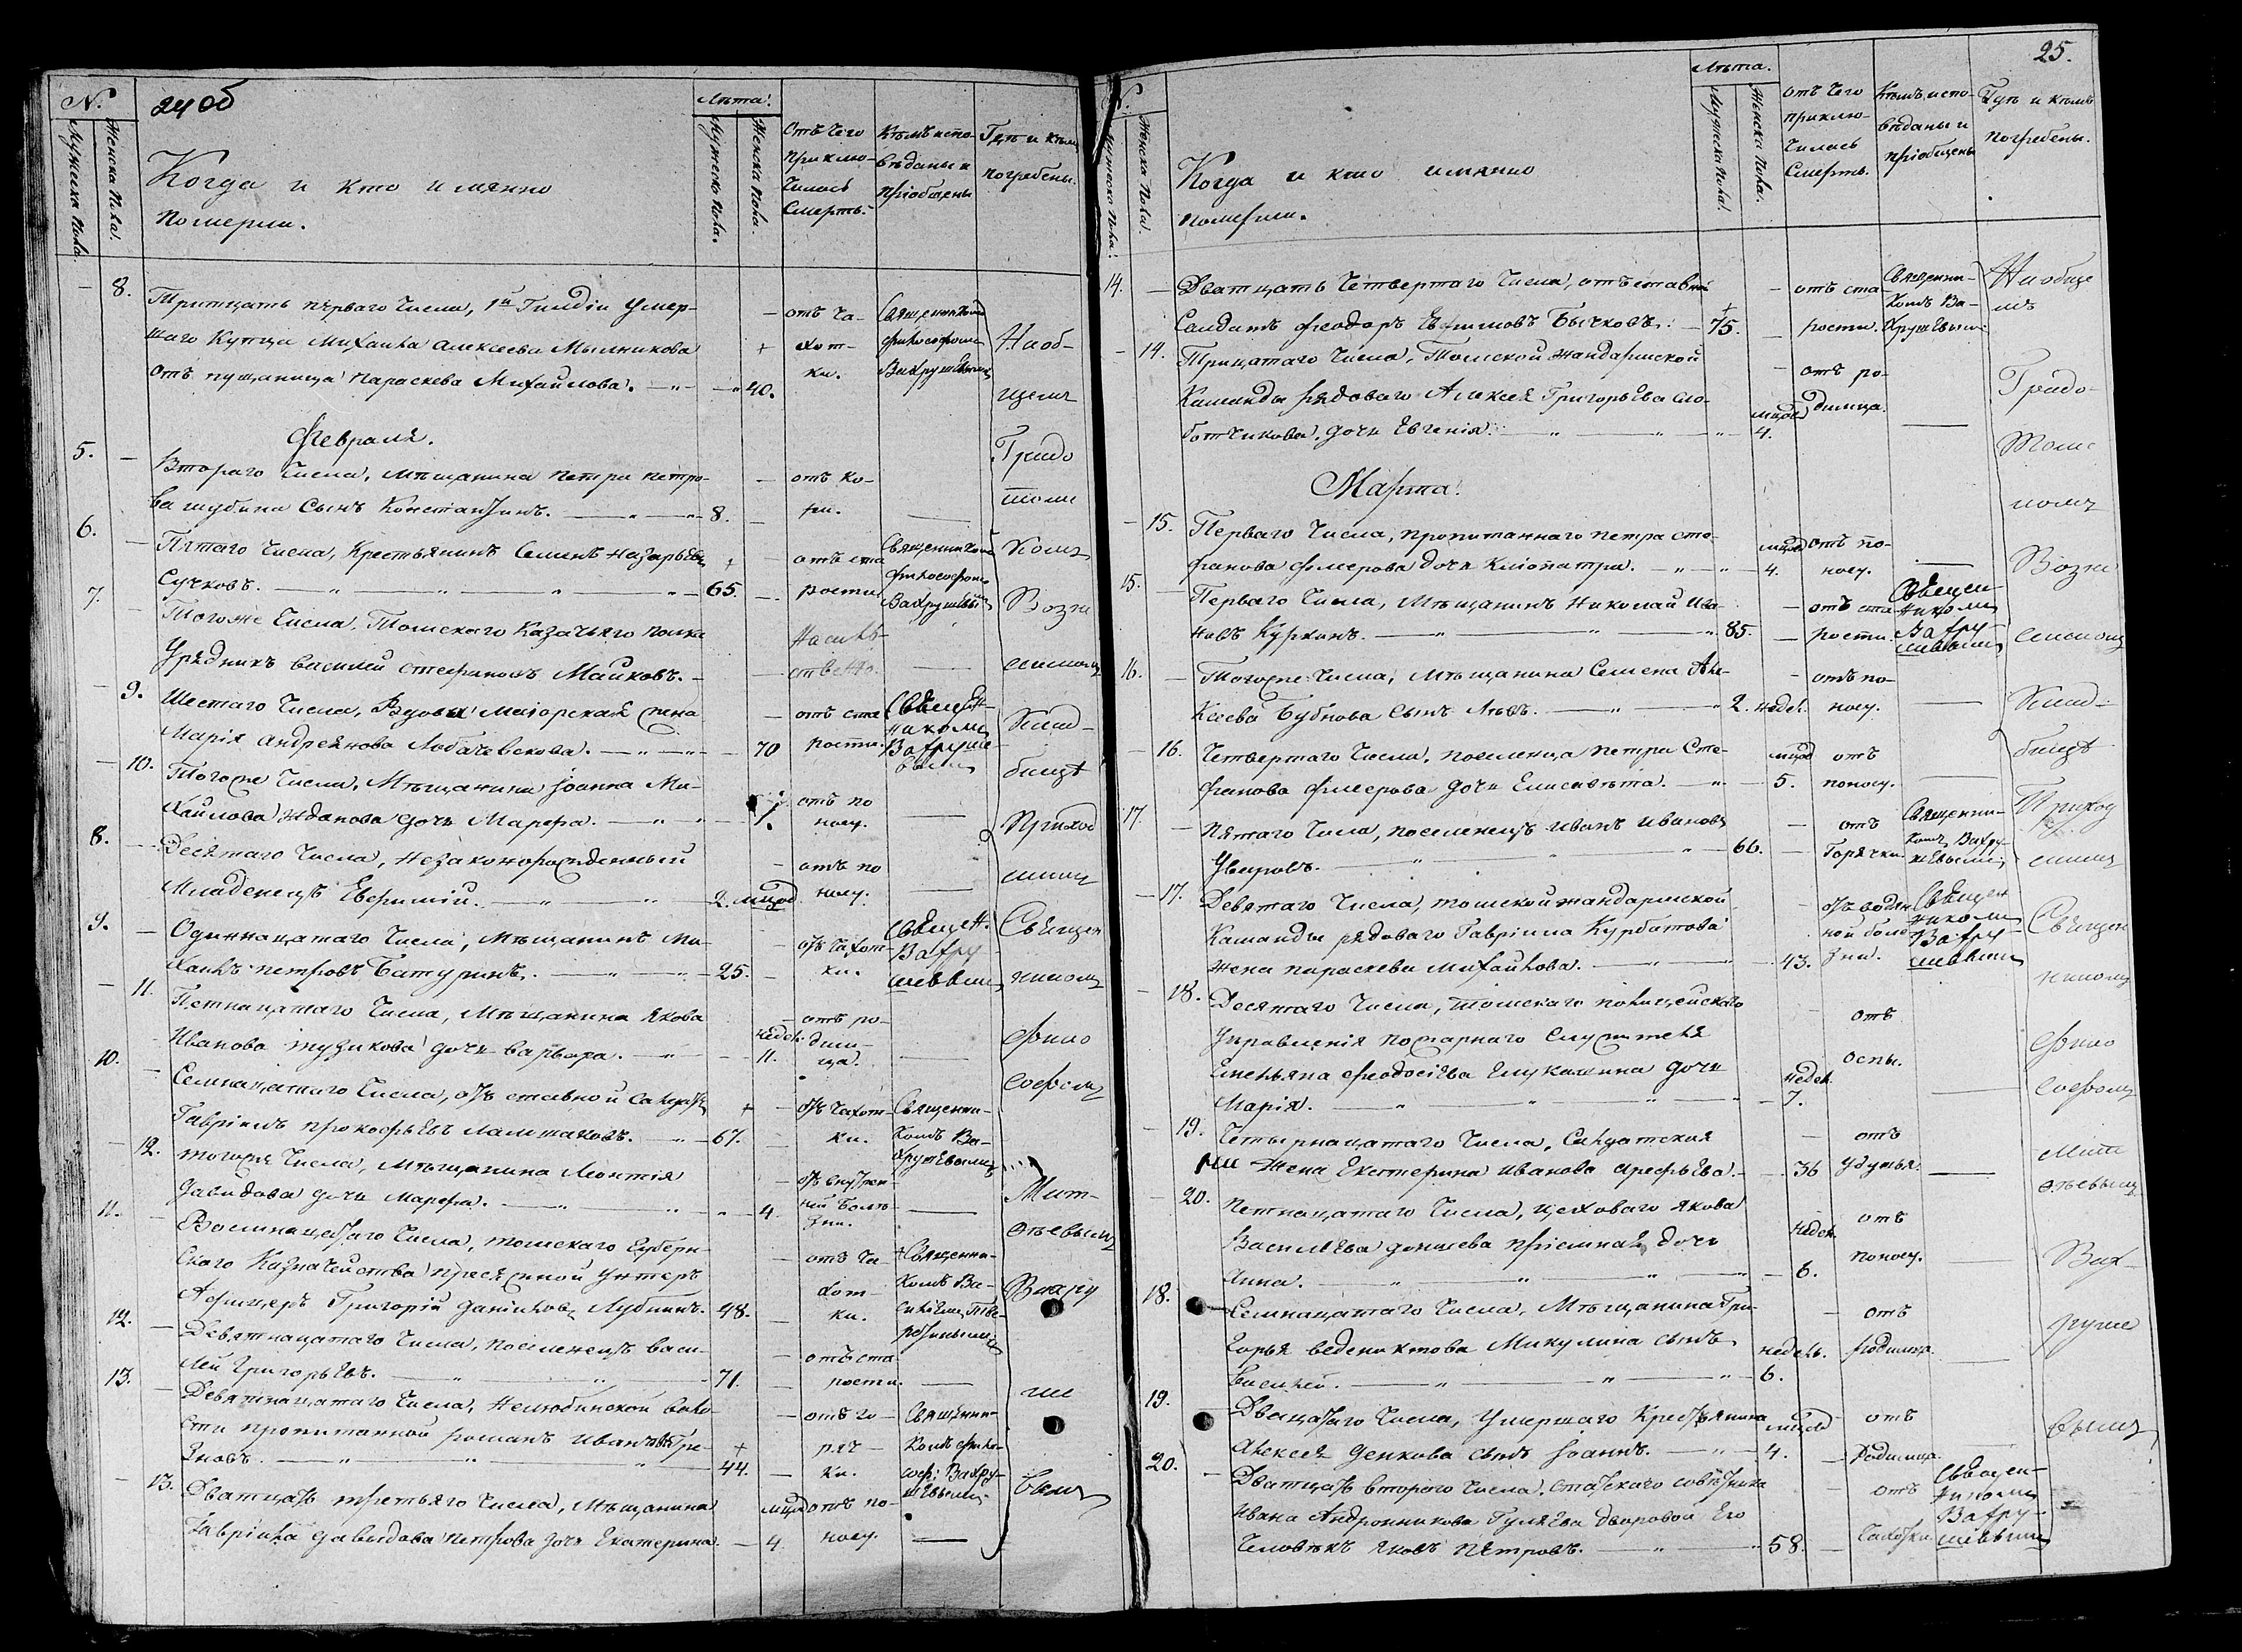 24 об
№.
Мужеска пола.
Женска пола.
Когда и кто имянно
померли.
Лѣта.
Мужеска пола.
Женска пола.
Отъ чего
приклю-
чилась
смерть.
Кѣмъ испо-
вѣданы и
пріобщены
Гдѣ и кѣмъ
погребены.
8.
Тритцать перваго числа, 1й Гильдіи умер-
шаго купца Михаила Алексеева Мыльникова
отъ пущаница Параскева Михайлова. 40.
отъ ча-
хот-
ки.
Священникомъ
Филосоѳомъ
Вахрушевымъ
Февраля.
5. Втораго числа, мѣщанина Петра Петро-
ва Шубина сынъ Константинъ. 8.
отъ ко-
ри.
6. Пятаго числа, крестьянинъ Семенъ Назарьевъ
Сучковъ. 65.
отъ ста
рости
Священникомъ
Филосоѳомъ
Вахрушевымъ
7. Тогоже числа, Томскаго казачьяго полка
урядникъ Василей Стефановъ Майковъ.
насиль-
ственно.
9. Шестаго числа, вдова Маіорская жена
Марія Андреянова Лобачевскова. 70
отъ ста
рости.
Священ-
никомъ
Вахруше
вымъ
10. Тогоже числа, мѣщанина Іоанна Ми-
хайлова Жданова дочь Марфа. 1.
отъ по
носу.
8. Десятаго числа, незаконорожденный
младенецъ Евфимій. 2. мцод
отъ по
носу.
9. Одиннацатаго числа, мѣщанинъ Ми-
хаилъ Петровъ Батуринъ. 25.
отъ чахот-
ки.
Священ.
Вахру-
шевымъ
11. Петнацатаго числа, мѣщанина Якова
Иванова Тузикова дочь Варвара. недел. 11.
отъ ро-
дим-
ца.
10. Семнацатаго числа, отъ ставной салдатъ
Гавріилъ Прокофьевъ Лалшаковъ. 67.
отъ чахот-
ки.
Священни-
комъ Ва-
хрушевымъ
12. Тогоже числа, мѣщанина Леонтія
Давидова дочь Марфа. 4.
отъ внутрен-
ней болѣ-
зни.
11. Восмнацатаго числа, Томскаго Губерн-
скаго Казначейства присяжной унтеръ
Афицеръ Григорій Даниловъ Лубнинъ. 48.
отъ ча-
хот-
ки.
Священни-
комъ Ва-
12. Девятнацатаго числа, поселенецъ Васи-
лей Григорьевъ. 71.
отъ ста
рости.
13. Девятнацатаго числа, Нелюбинской воло-
сти пропитанной Романъ Ивановъ Гре-
зновъ. 44.
отъ го-
ряч-
ки.
Священни-
комъ Фило-
соф: Вахру-
шевымъ
13. Дватцать третьяго числа, мѣщанина
Гавріила Давыдова Петрова дочь Екатерина. мцод 4.
отъ по-
носу.
На об-
щемъ
Градо
Томс
комъ
Возне
сенском
Клад-
бищѣ
Приход
скимъ
Священ
никомъ
Фило
софомъ
Мит-
ѳѣевымъ
Вахру
ше
вымъ
25.
№.
Мужеска пола.
Женска пола.
Когда и кто имянно
померли.
Лѣта.
Мужеска пола.
Женска пола.
Отъ чего
приклю-
чилась
смерть.
Кѣмъ испо-
вѣданы и
пріобщены
Гдѣ и кѣмъ
погребены.
14. Дватцать четвертаго числа, отъ ставной
салдатъ Феодоръ Ефимовъ Бычковъ. 75.
отъ ста-
рости.
Священни-
комъ Ва-
хрушевымъ
14. Трицатаго числа, Томской жандармской
каманды рядоваго Алексея Григорьева Сло-
ботчикова, дочь Евгенія. мцов 4.
отъ ро-
димца.
Марта.
15. Перваго числа, пропитаннаго Петра Сте-
фанова Фмерова дочь Клiопатра. мцов 4.
отъ по-
носу.
15. Перваго числа, мѣщанинъ Николай Ива-
новъ Куркинъ. 85.
отъ ста
рости.
Священ
никомъ
Вахру-
шевымъ
16. Тогоже числа, мѣщанина Семена Але-
ксеева Бубнова сынъ Левъ. 2. недел.
отъ по-
носу.
16. Четвертаго числа, поселенца Петра Сте-
фанова Фмерова дочь Елисавета. мцов 5.
отъ
поносу.
17. Пятаго числа, поселенецъ Иванъ Ивановъ
Уваровъ. 66.
отъ
горячки.
Священни-
комъ Вахру-
шевымъ
17. Девятаго числа, Томской жандармской
каманды рядоваго Гавріила Курбатова
жена Параскева Михайлова. 43.
отъ водян
ной болѣ
зни.
Священ
никомъ
Вахру-
шевымъ
18. Десятаго числа, Томскаго полицейскаго
управленія пожарнаго служителя
Емельяна Феодосіева Елукашина дочь
Марія. недел. 7.
отъ
оспы.
19. Четырнацатаго числа, салдатская
жена Екатерина Иванова Арефьева. 36
отъ
удушья.
20. Петнацатаго числа, цеховаго Якова
Васильева Донцева пріемная дочь
Анна. недел. 6.
отъ
поносу.
18. Семнацатаго числа, мѣщанина Гри-
горья Веденихтова Микулина сынъ
Василей. недель. 6.
отъ
родимца.
19. Двацатаго числа, умершаго крестьянина
Алексея Денкова сынъ Іоаннъ. мцов 4.
отъ
родимца.
20. Дватцать втораго числа, статскаго совѣтника
Ивана Андронникова Гуляева дворовой его
человѣкъ Яковъ Петровъ. 58.
отъ
чахотки
Священ-
никомъ
Вахру-
шевымъ
На обще
мъ
Градо-
Томс
комъ
Возне
сенском
Клад-
бищѣ
Приход
скимъ
Священ
никомъ
Фило
софомъ
Мит
ѳѣевымъ
Вах-
руше
вымъ